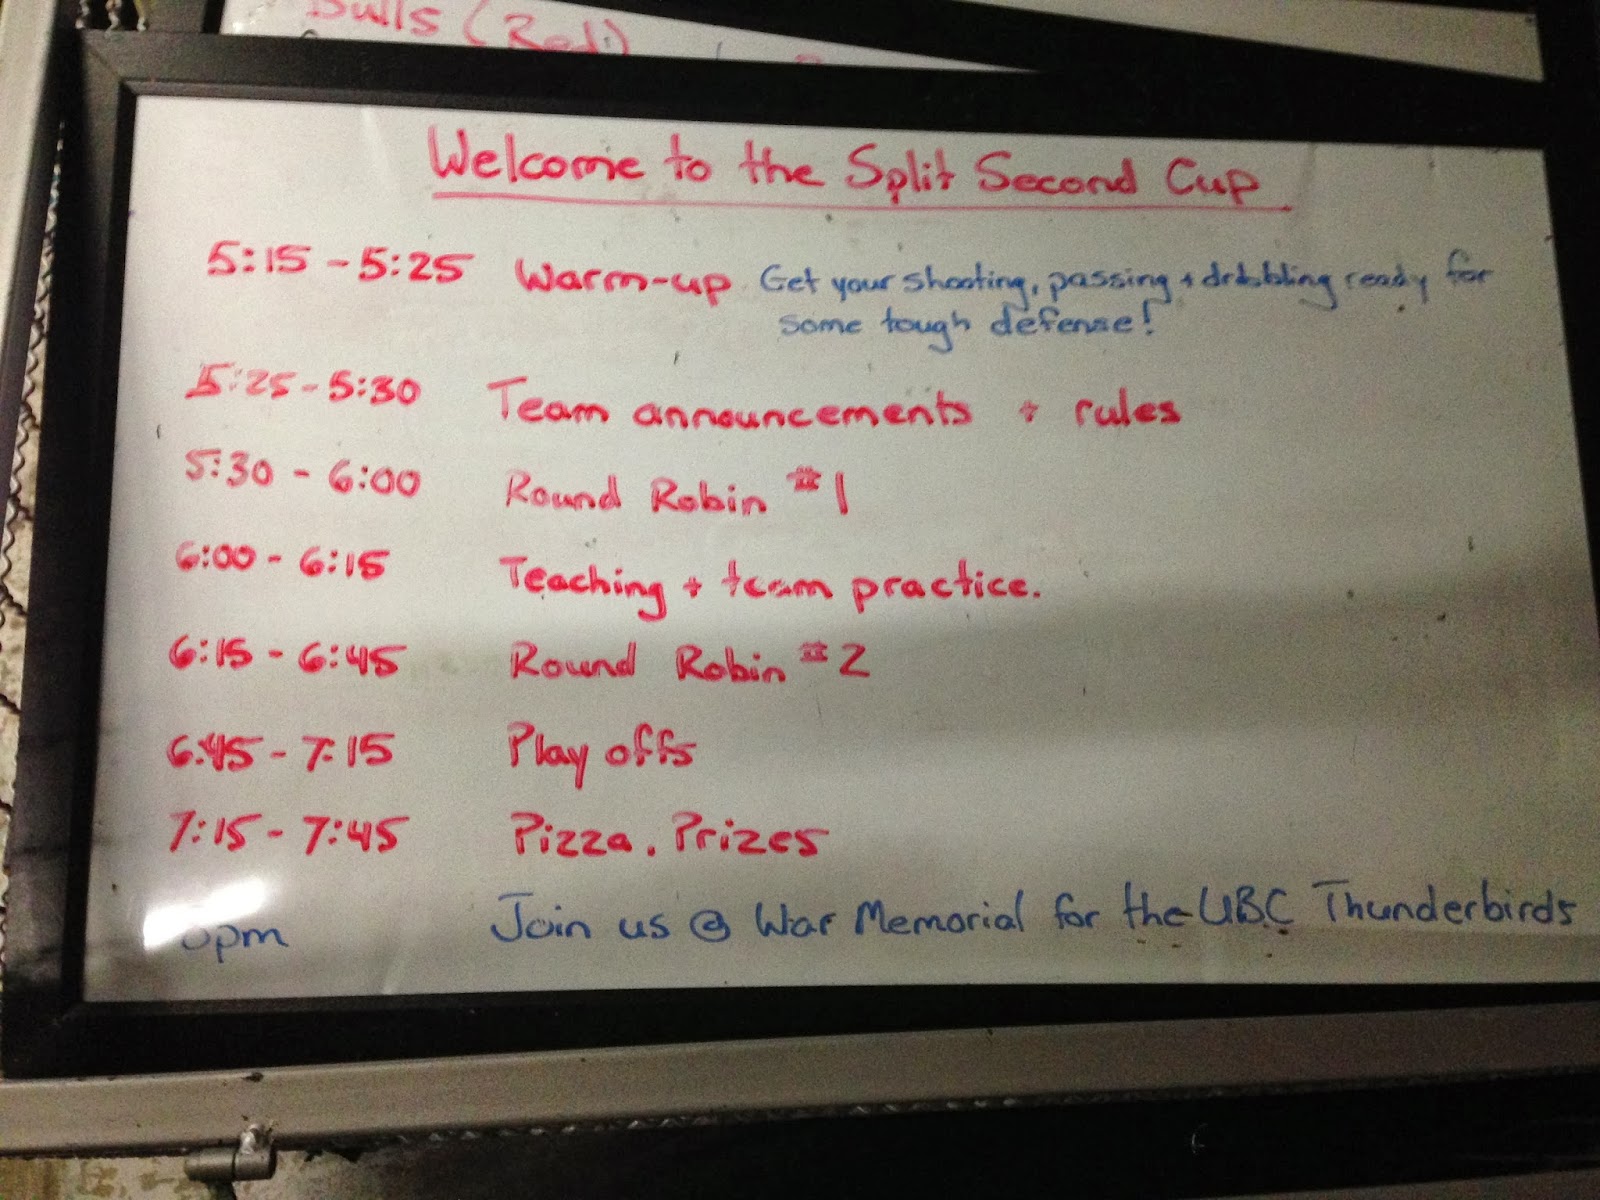 Bulls (Red)
Welcome to the Split Second Cup
5:15 - 5:25 Warm-up Get your shooting, passing + dribbling ready for
some tough defense!
5:25 - 5:30 Team announcements + rules
5:30 - 6:00 Round Robin #1
6:00 - 6:15 Teaching + team practice.
6:15 - 6:45 Round Robin #2
6:45 - 7:15 Play offs
7:15 - 7:45 Pizza. Prizes
pm Join us @ War Memorial for the UBC Thunderbirds